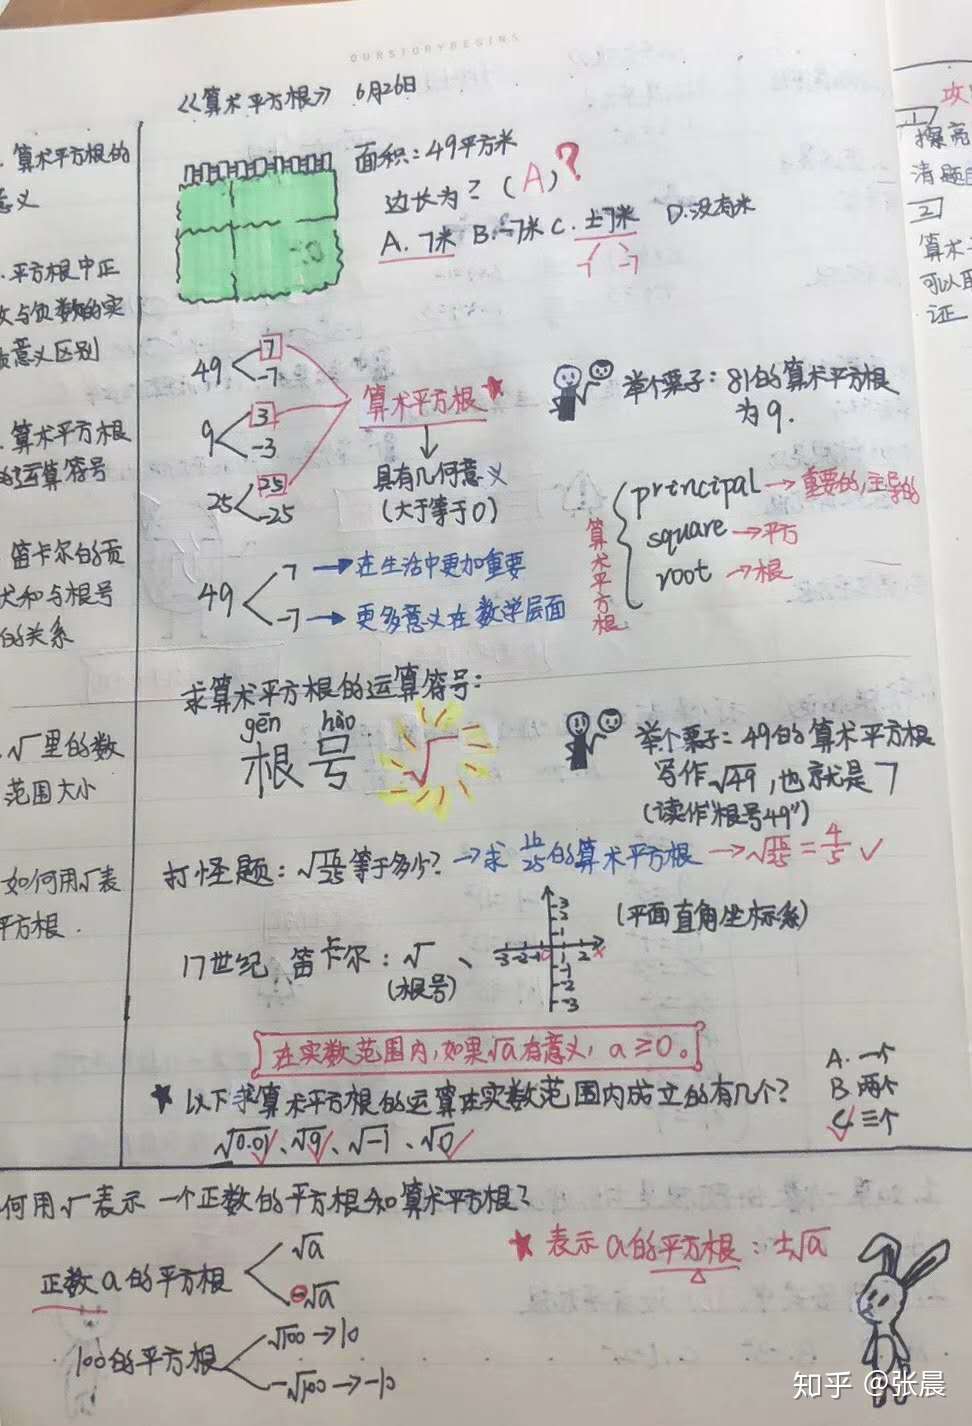 OURSTORYBEGINS
《算术平方根》 6月26日
算术平方根的
意义
平方根中正
数与负数的实
质意义区别
算术平方根
的运算符号
笛卡尔的贡
献和与根号
的关系
√里的数
范围大小
如何用√表
平方根.
面积:49平方米
边长为?(A)?
A.7米 B.-7米 C.±7米 D.没有米
7 -7
49 7 -7
9 3 -3
25 25 -25
算术平方根★
具有几何意义
(大于等于0)
举个栗子:81的算术平方根
为9.
算术平方根
principal→重要的,主导的
square→平方
root→根
49 7→在生活中更加重要
-7→更多意义在数学层面
求算术平方根的运算符号:
gēn hào
根号 √
举个栗子:49的算术平方根
写作√49,也就是7
(读作"根号49")
打怪题:√16/25等于多少?→求16/25的算术平方根→√16/25=4/5 ✓
17世纪 笛卡尔:√、
(根号)
(平面直角坐标系)
3
2
1
-3 -2 -1 0 1 2 x
-1
-2
-3
在实数范围内,如果√a有意义,a≥0。
★以下求算术平方根的运算在实数范围内成立的有几个?
√0.01、√9、√-1、√0
A.一个
B.两个
C.三个
何用√表示一个正数的平方根和算术平方根?
正数a的平方根 √a
-√a
★表示a的平方根:±√a
100的平方根 √100→10
-√100→-10
攻
1
擦亮
清题目
2
算术
可以用
证
知乎 @张晨